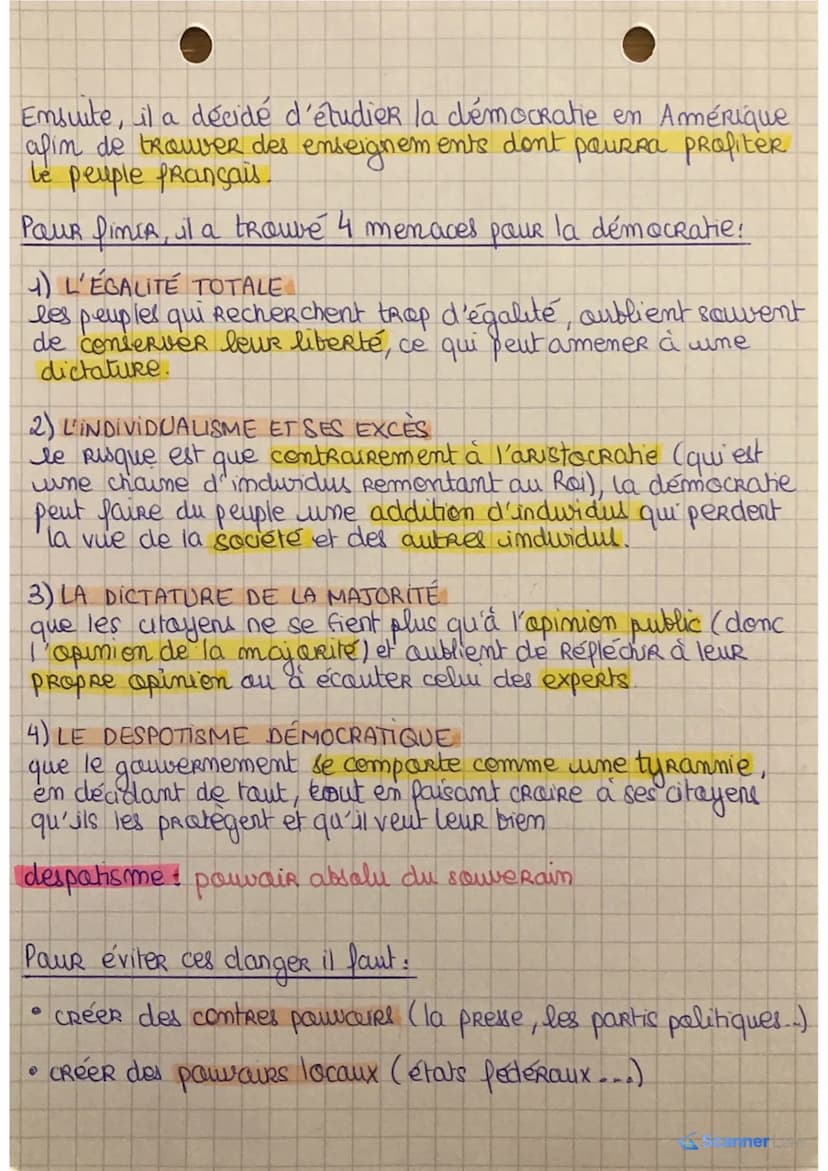 Ensuite, il a décidé d'étudier la démocratie en Amérique
afin de trouver des enseignements dont pourra profiter
le peuple français.
Pour finir, il a trouvé 4 menaces pour la démocratie:
1) L'ÉGALITÉ TOTALE
les peuples qui recherchent trop d'égalité, oublient souvent
de conserver leur liberté, ce qui peut amener à une
dictature.
2) L'INDIVIDUALISME ET SES EXCÈS
le risque est que contrairement à l'aristocratie (qui est
une chaine d'individus remontant au Roi), la démocratie
peut faire du peuple une addition d'individus qui perdent
la vue de la société et des autres individus.
3) LA DICTATURE DE LA MAJORITÉ
que les citoyens ne se fient plus qu'à l'opinion public (donc
l'opinion de la majorité) et oublient de réfléchir à leur
propre opinion ou à écouter celui des experts
4) LE DESPOTISME DÉMOCRATIQUE
que le gouvernement se comporte comme une tyrannie,
en décidant de tout, tout en faisant croire à ses citoyens
qu'ils les protègent et qu'il veut leur bien
despotisme : pouvoir absolu du souverain
Pour éviter ces danger il faut :
• créer des contres pouvoirs (la presse, les partis politiques...)
• créer des pouvoirs locaux (états fédéraux ...)
Scanner